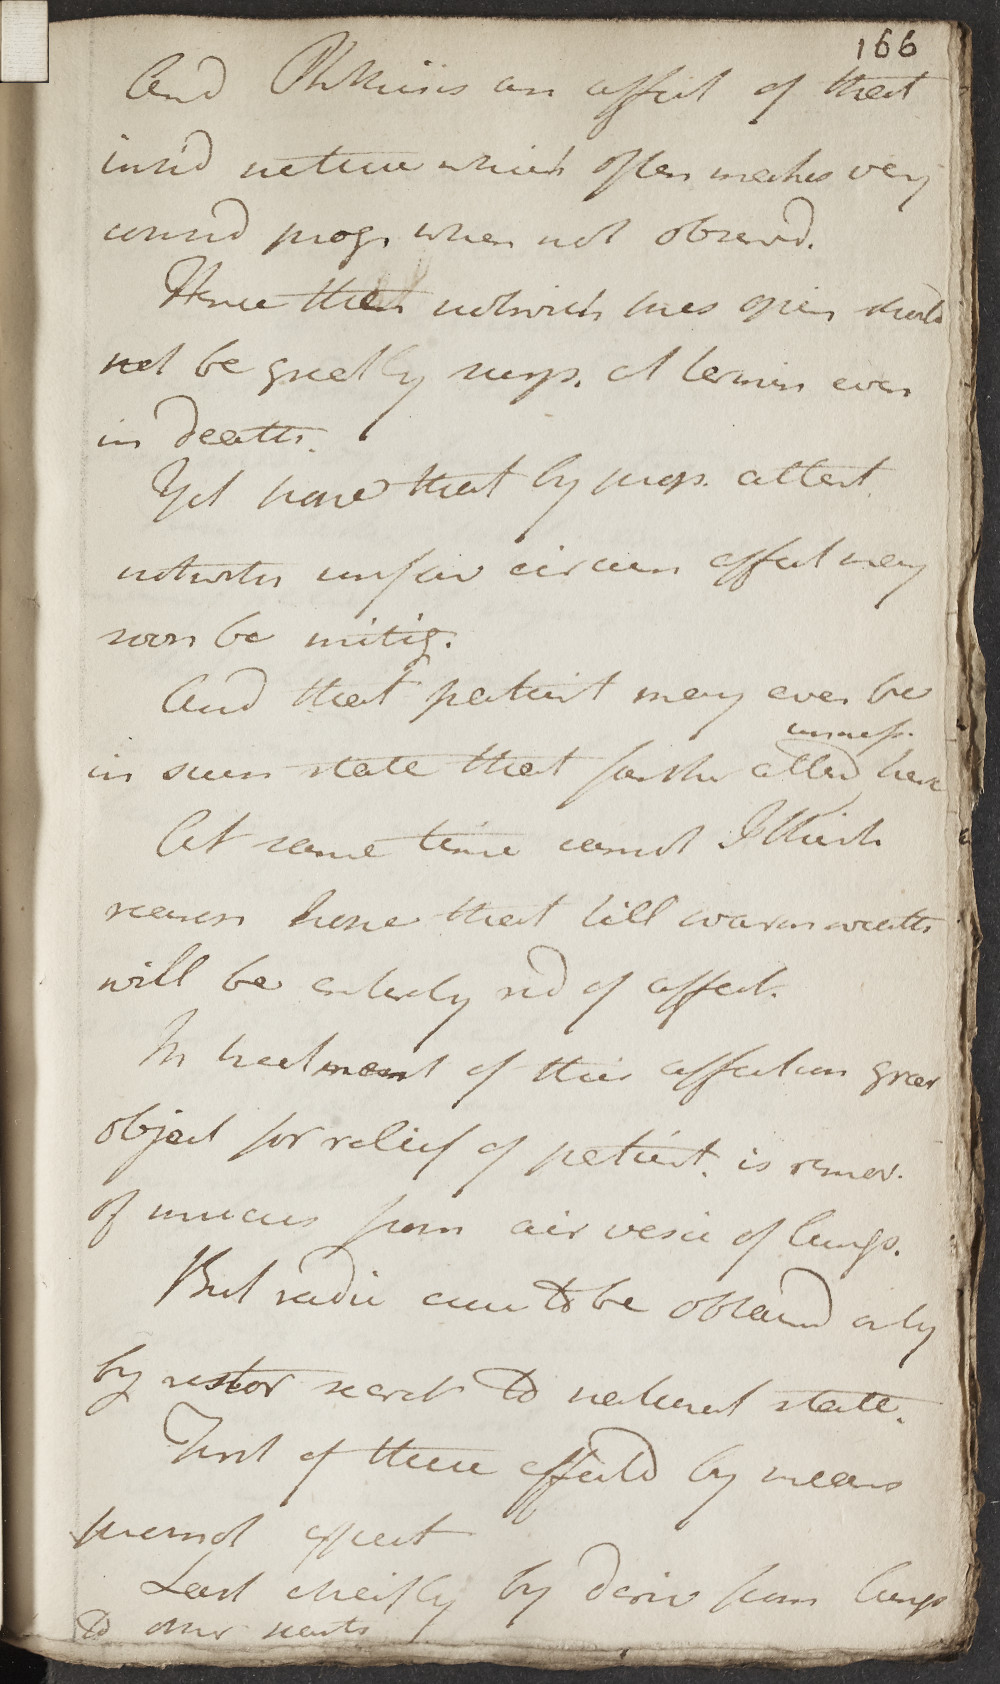 166
And Phthisis an affect of that
insid nature which often makes very
consid progr when not observd.
Hence then notwith fines opin should
not be greatly surps. at termin even
in death.
Yet hope that by prop. attent
notwith unfav circum affect may
soon be mitig.
And that patient may even be
unness.
in such state that farther attend here
At same time cannot I think
reason hope that till warm weath
will be entirely rid of affect.
In treatment of this affection great
object for relief of patient. is remov.
of mucus from air vesic of lungs.
But radic cure to be obtaind only
by restor secret to natural state.
First of these effectd by means
promot expect
Last cheifly by deriv from lungs
to other parts